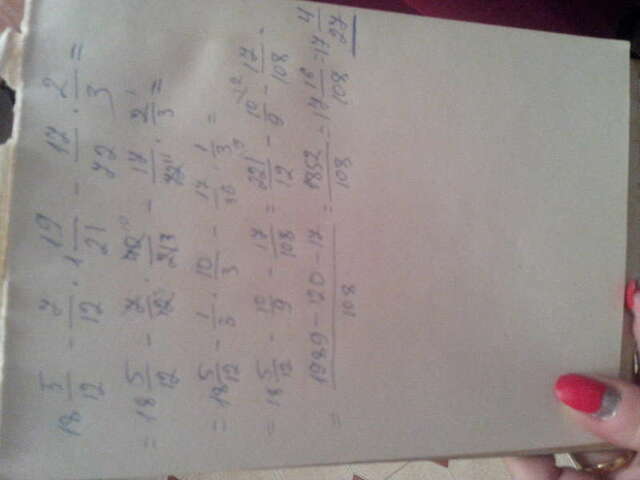 18 5/12 - 7/12 · 1 19/21 - 17/72 · 2/3 =
= 18 5/12 - 7/12 · 40/21 - 17/72 · 2/3 =
= 18 5/12 - 1/3 · 10/3 - 17/36 · 1/3 =
= 18 5/12 - 10/9 - 17/108 = 221/12 - 10/9 - 17/108 =
= (1989 - 120 - 17)/108 = 1852/108 = 17 16/108 = 17 4/27